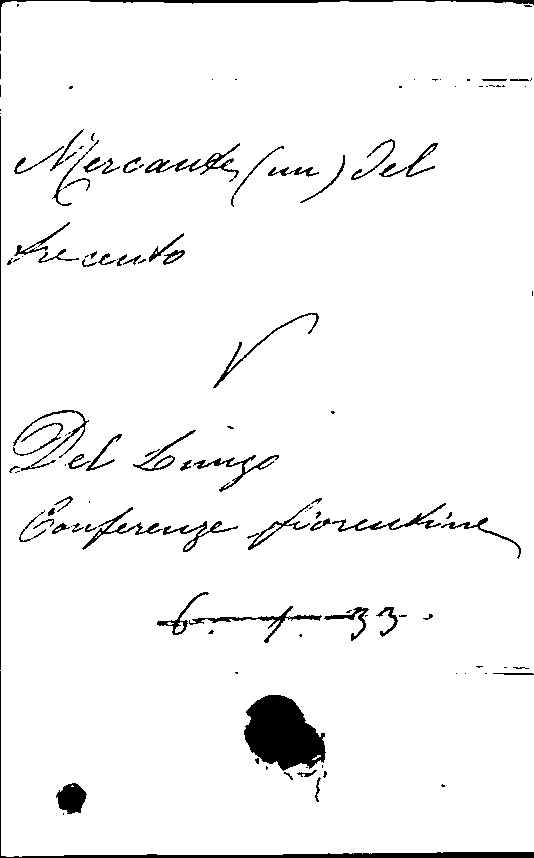 Mercante (un) del
trecento
V
Del Lungo
Conferenze fiorentine
6. 1. 33.